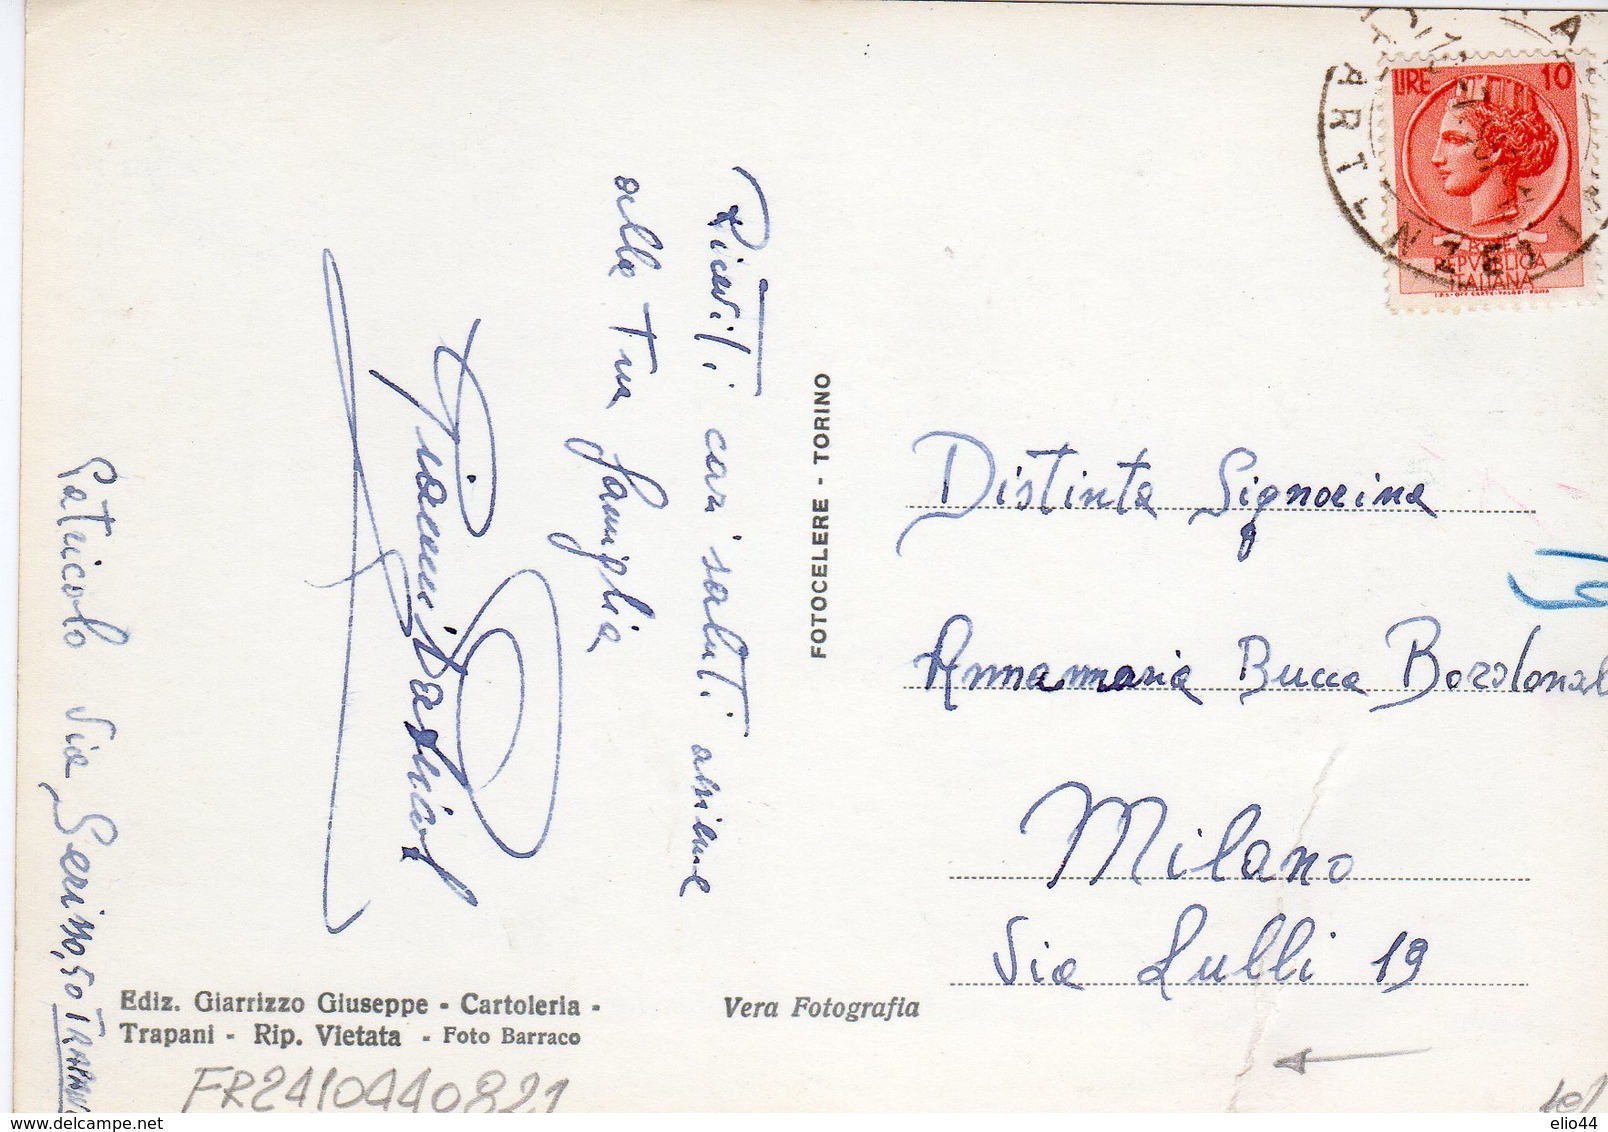 Riceviti cari saluti assieme
alla tua famiglia
Gianni
Via Serisso, 50 TRAPANI
FOTOCELERE - TORINO
LIRE 10
REPVBBLICA
ITALIANA
PARTENZE
Distinta Signorina
Annamaria Bucca
Milano
Via Lulli 19
Ediz. Giarrizzo Giuseppe - Cartoleria -
Trapani - Rip. Vietata - Foto Barraco
Vera Fotografia
FR2410440821
delcampe.net
elio44